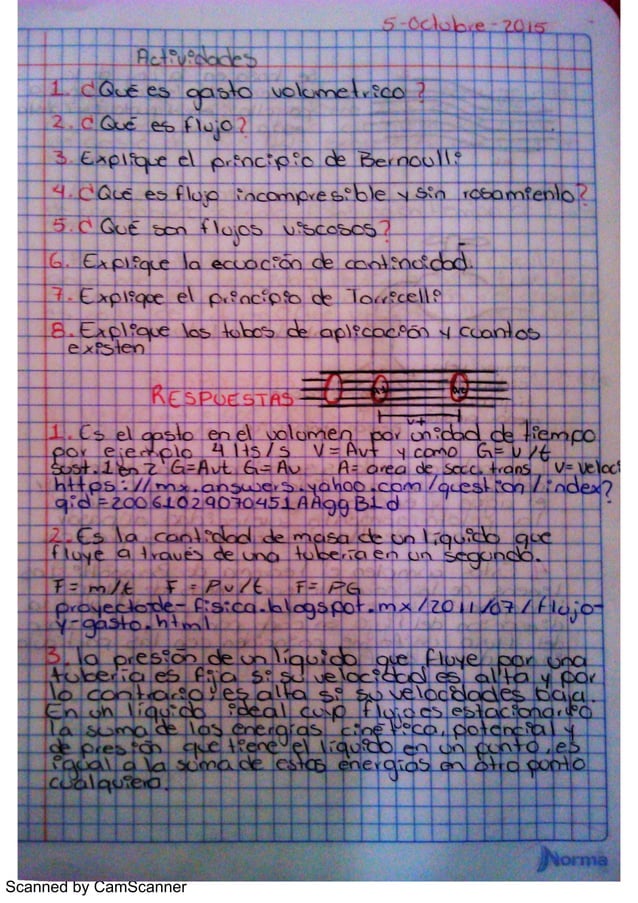 5-Octubre-2015
Actividades
1. ¿Qué es gasto volumetrico?
2. ¿Qué es flujo?
3. Explique el principio de Bernoulli
4. ¿Qué es flujo incompresible y sin rosamiento?
5. ¿Qué son flujos viscosos?
6. Explique la ecuación de continuidad.
7. Explique el principio de Torricelli
8. Explique los tubos de aplicación y cuantos
existen
RESPUESTAS
vt
1. Es el gasto en el volumen por unidad de tiempo
por ejemplo 4 lts/s V=Avt y como G=V/t
sust. 1 en 2 G=Avt G=Av A= area de secc. trans V= veloci
https://mx.answers.yahoo.com/question/index?
qid=20061029070451AAggB1d
2. Es la cantidad de masa de un liquido que
fluye a través de una tuberia en un segundo.
F=m/t F=Pv/t F=PG
proyectode-fisica.blogspot.mx/2011/07/flujo-
y-gasto.html
3. la presión de un liquido que fluye por una
tuberia es fija si su velocidad es alta y por
lo contrario, es alta si su velocidades baja.
En un liquido ideal cuyo flujo es estacionario
la suma de las energias cinetica, potencial y
de presión que tiene el liquido en un punto, es
igual a la suma de estas energias en otro punto
cualquiera.
Norma
Scanned by CamScanner